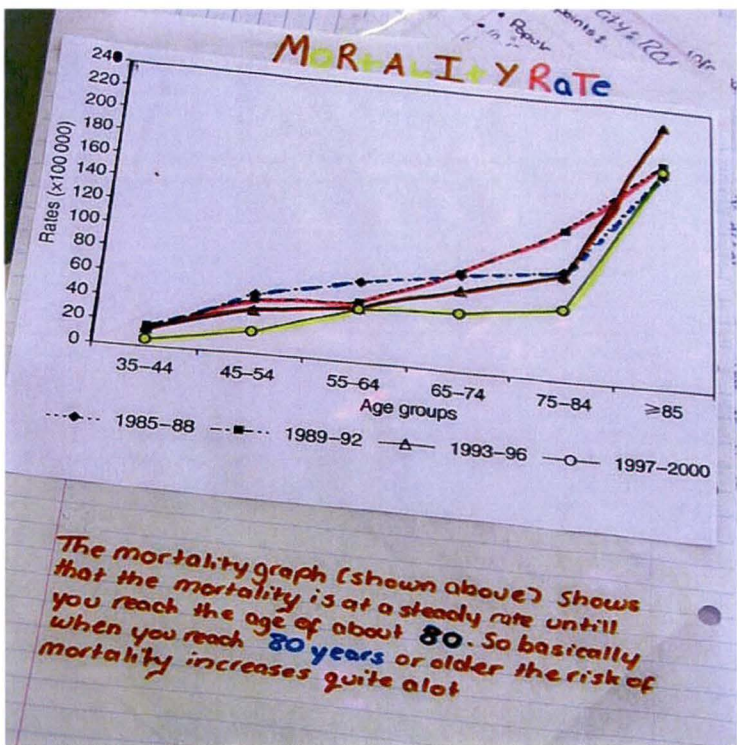 Popul
points
City's RCA
Infr
MORtALItY RaTe
240
220
200
180
160
140
120
100
80
60
40
20
0
Rates (×100 000)
35–44
45–54
55–64
65–74
75–84
≥85
Age groups
1985–88
1989–92
1993–96
1997–2000
The mortality graph (shown above) shows
that the mortality is at a steady rate untill
you reach the age of about 80. So basically
when you reach 80 years or older the risk of
mortality increases quite alot